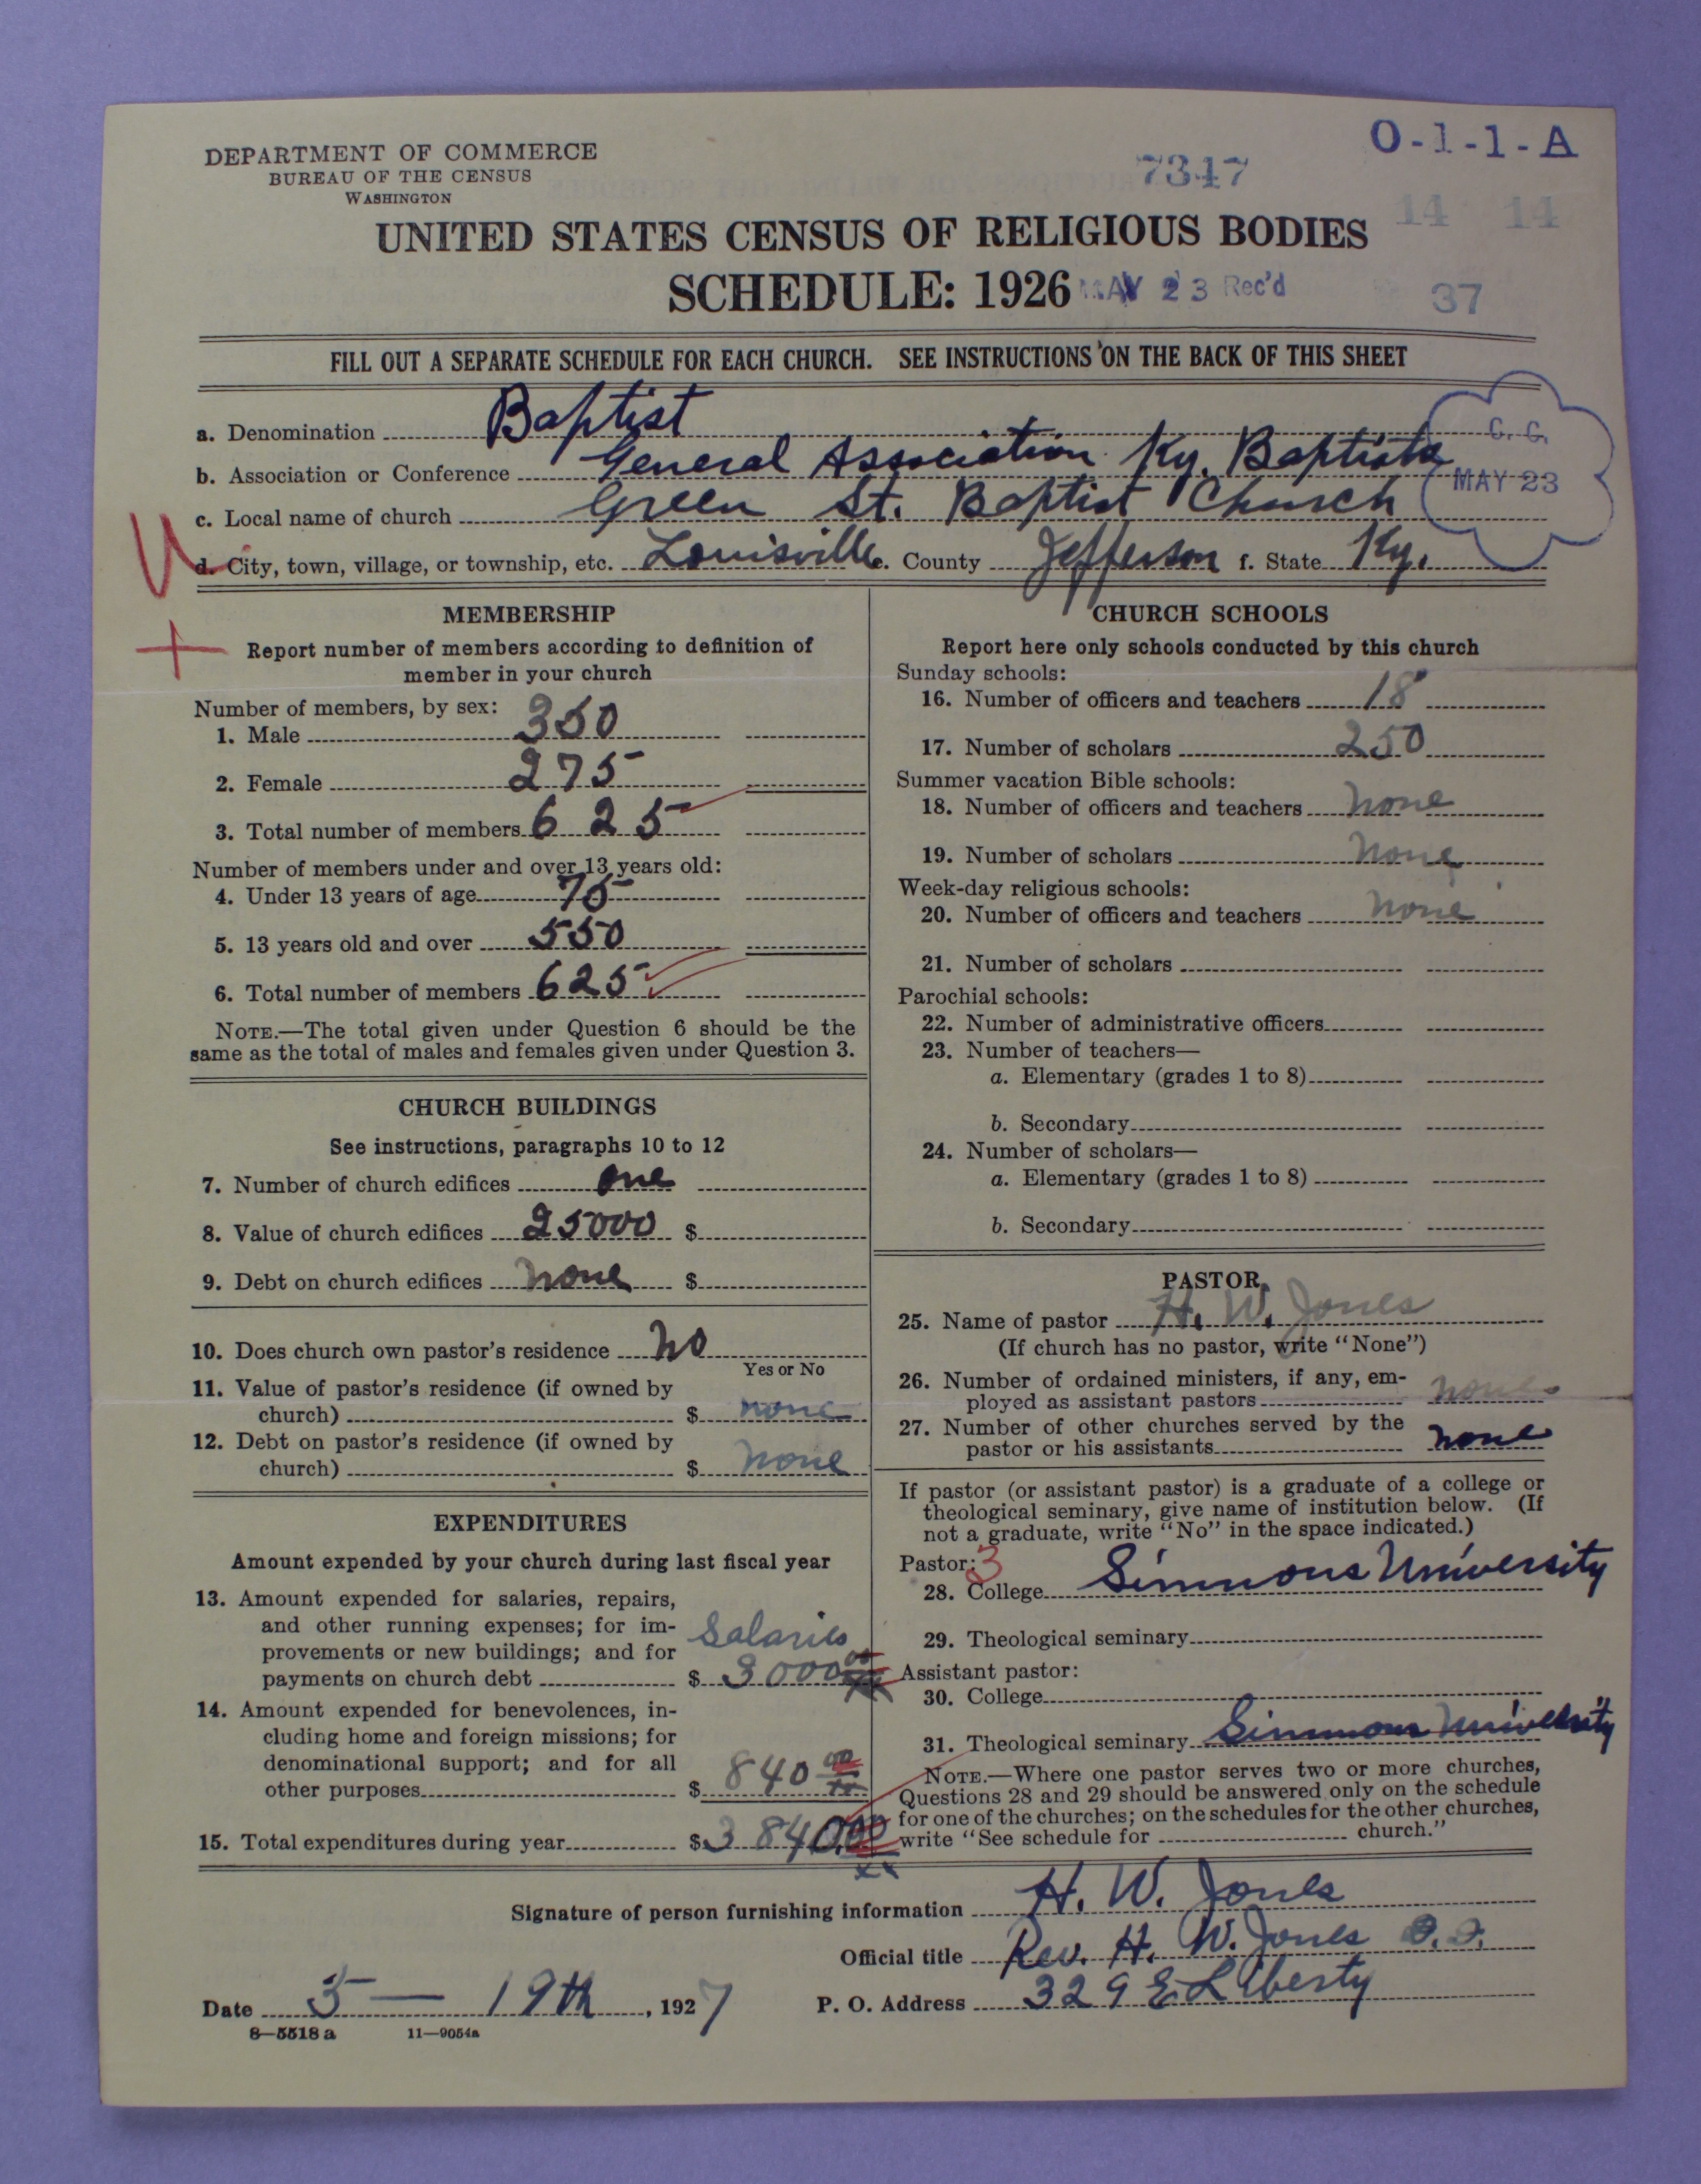 DEPARTMENT OF COMMERCE
BUREAU OF THE CENSUS
WASHINGTON
O-1-1-A
7347
14 14
UNITED STATES CENSUS OF RELIGIOUS BODIES
SCHEDULE: 1926
MAY 23 Rec'd
37
FILL OUT A SEPARATE SCHEDULE FOR EACH CHURCH. SEE INSTRUCTIONS ON THE BACK OF THIS SHEET
a. Denomination Baptist
b. Association or Conference General Association Ky. Baptists
C. G.
MAY 23
c. Local name of church Green St. Baptist Church
d. City, town, village, or township, etc. Louisville e. County Jefferson f. State Ky.
MEMBERSHIP
Report number of members according to definition of
member in your church
Number of members, by sex:
1. Male 350
2. Female 275
3. Total number of members 625
Number of members under and over 13 years old:
4. Under 13 years of age 75
5. 13 years old and over 550
6. Total number of members 625
NOTE.—The total given under Question 6 should be the
same as the total of males and females given under Question 3.
CHURCH BUILDINGS
See instructions, paragraphs 10 to 12
7. Number of church edifices one
8. Value of church edifices 25000 $
9. Debt on church edifices none $
10. Does church own pastor's residence no
Yes or No
11. Value of pastor's residence (if owned by
church) $ none
12. Debt on pastor's residence (if owned by
church) $ none
EXPENDITURES
Amount expended by your church during last fiscal year
13. Amount expended for salaries, repairs,
and other running expenses; for im-
provements or new buildings; and for
payments on church debt $ Salaries 3000 00
14. Amount expended for benevolences, in-
cluding home and foreign missions; for
denominational support; and for all
other purposes $ 840 00
15. Total expenditures during year $ 3840.00
CHURCH SCHOOLS
Report here only schools conducted by this church
Sunday schools:
16. Number of officers and teachers 18
17. Number of scholars 250
Summer vacation Bible schools:
18. Number of officers and teachers none
19. Number of scholars none
Week-day religious schools:
20. Number of officers and teachers none
21. Number of scholars
Parochial schools:
22. Number of administrative officers
23. Number of teachers—
a. Elementary (grades 1 to 8)
b. Secondary
24. Number of scholars—
a. Elementary (grades 1 to 8)
b. Secondary
PASTOR
25. Name of pastor H. W. Jones
(If church has no pastor, write "None")
26. Number of ordained ministers, if any, em-
ployed as assistant pastors none
27. Number of other churches served by the
pastor or his assistants none
If pastor (or assistant pastor) is a graduate of a college or
theological seminary, give name of institution below. (If
not a graduate, write "No" in the space indicated.)
Pastor: 3
28. College Simmons University
29. Theological seminary
Assistant pastor:
30. College
31. Theological seminary Simmons University
NOTE.—Where one pastor serves two or more churches,
Questions 28 and 29 should be answered only on the schedule
for one of the churches; on the schedules for the other churches,
write "See schedule for church."
Signature of person furnishing information H. W. Jones
Official title Rev. H. W. Jones D.D.
Date 5 — 19th, 1927
P. O. Address 329 E Liberty
8—5518 a 11—9054a